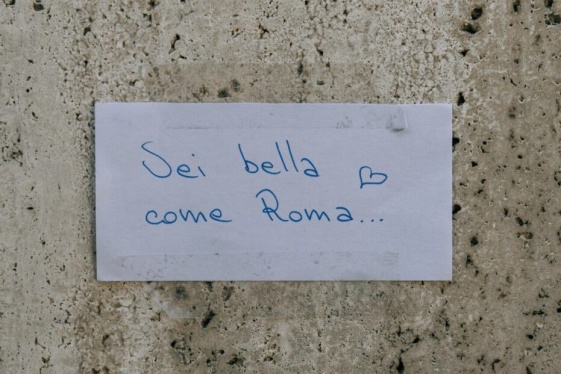 Sei bella ♡
come Roma...